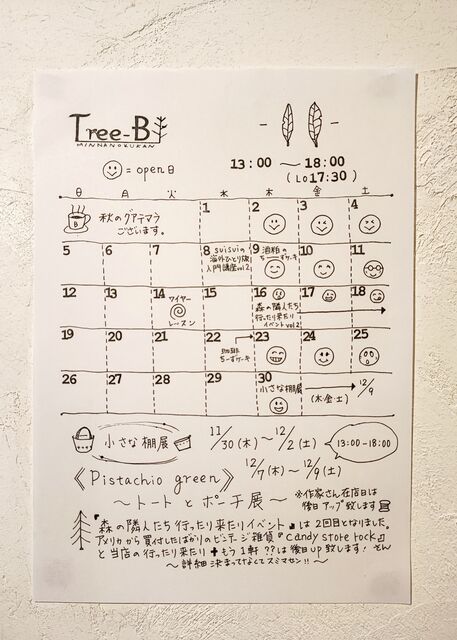 Tree-B
MINNANOKUKAN
= open日
13:00 〜 18:00
(LO 17:30)
日 月 火 水 木 金 土
秋のグアテマラ
ございます。
1 2 3 4
5 6 7 8 9 10 11
suisuiの
海外ひとり旅
入門講座vol2
酒粕の
ちーずケーキ
12 13 14 15 16 17 18
ワイヤー
レッスン
森の隣人たち
行ったり来たり
イベントvol2
19 20 21 22 23 24 25
珈琲
ちーずケーキ
26 27 28 29 30
小さな棚展
12/9
(木・金・土)
小さな棚展 11/30(木)〜12/2(土)
12/7(木)〜12/9(土)
13:00-18:00
《Pistachio green》
〜トートとポーチ展〜
※作家さん在店日は
後日アップ致します
『森の隣人たち行ったり来たりイベント』は2回目となりました。
アメリカから買付したばかりのビンテージ雑貨『Candy store rock』
と当店の行ったり来たり+もう1軒??は後日up致します!
〜詳細決まってなくてスミマセン!!〜